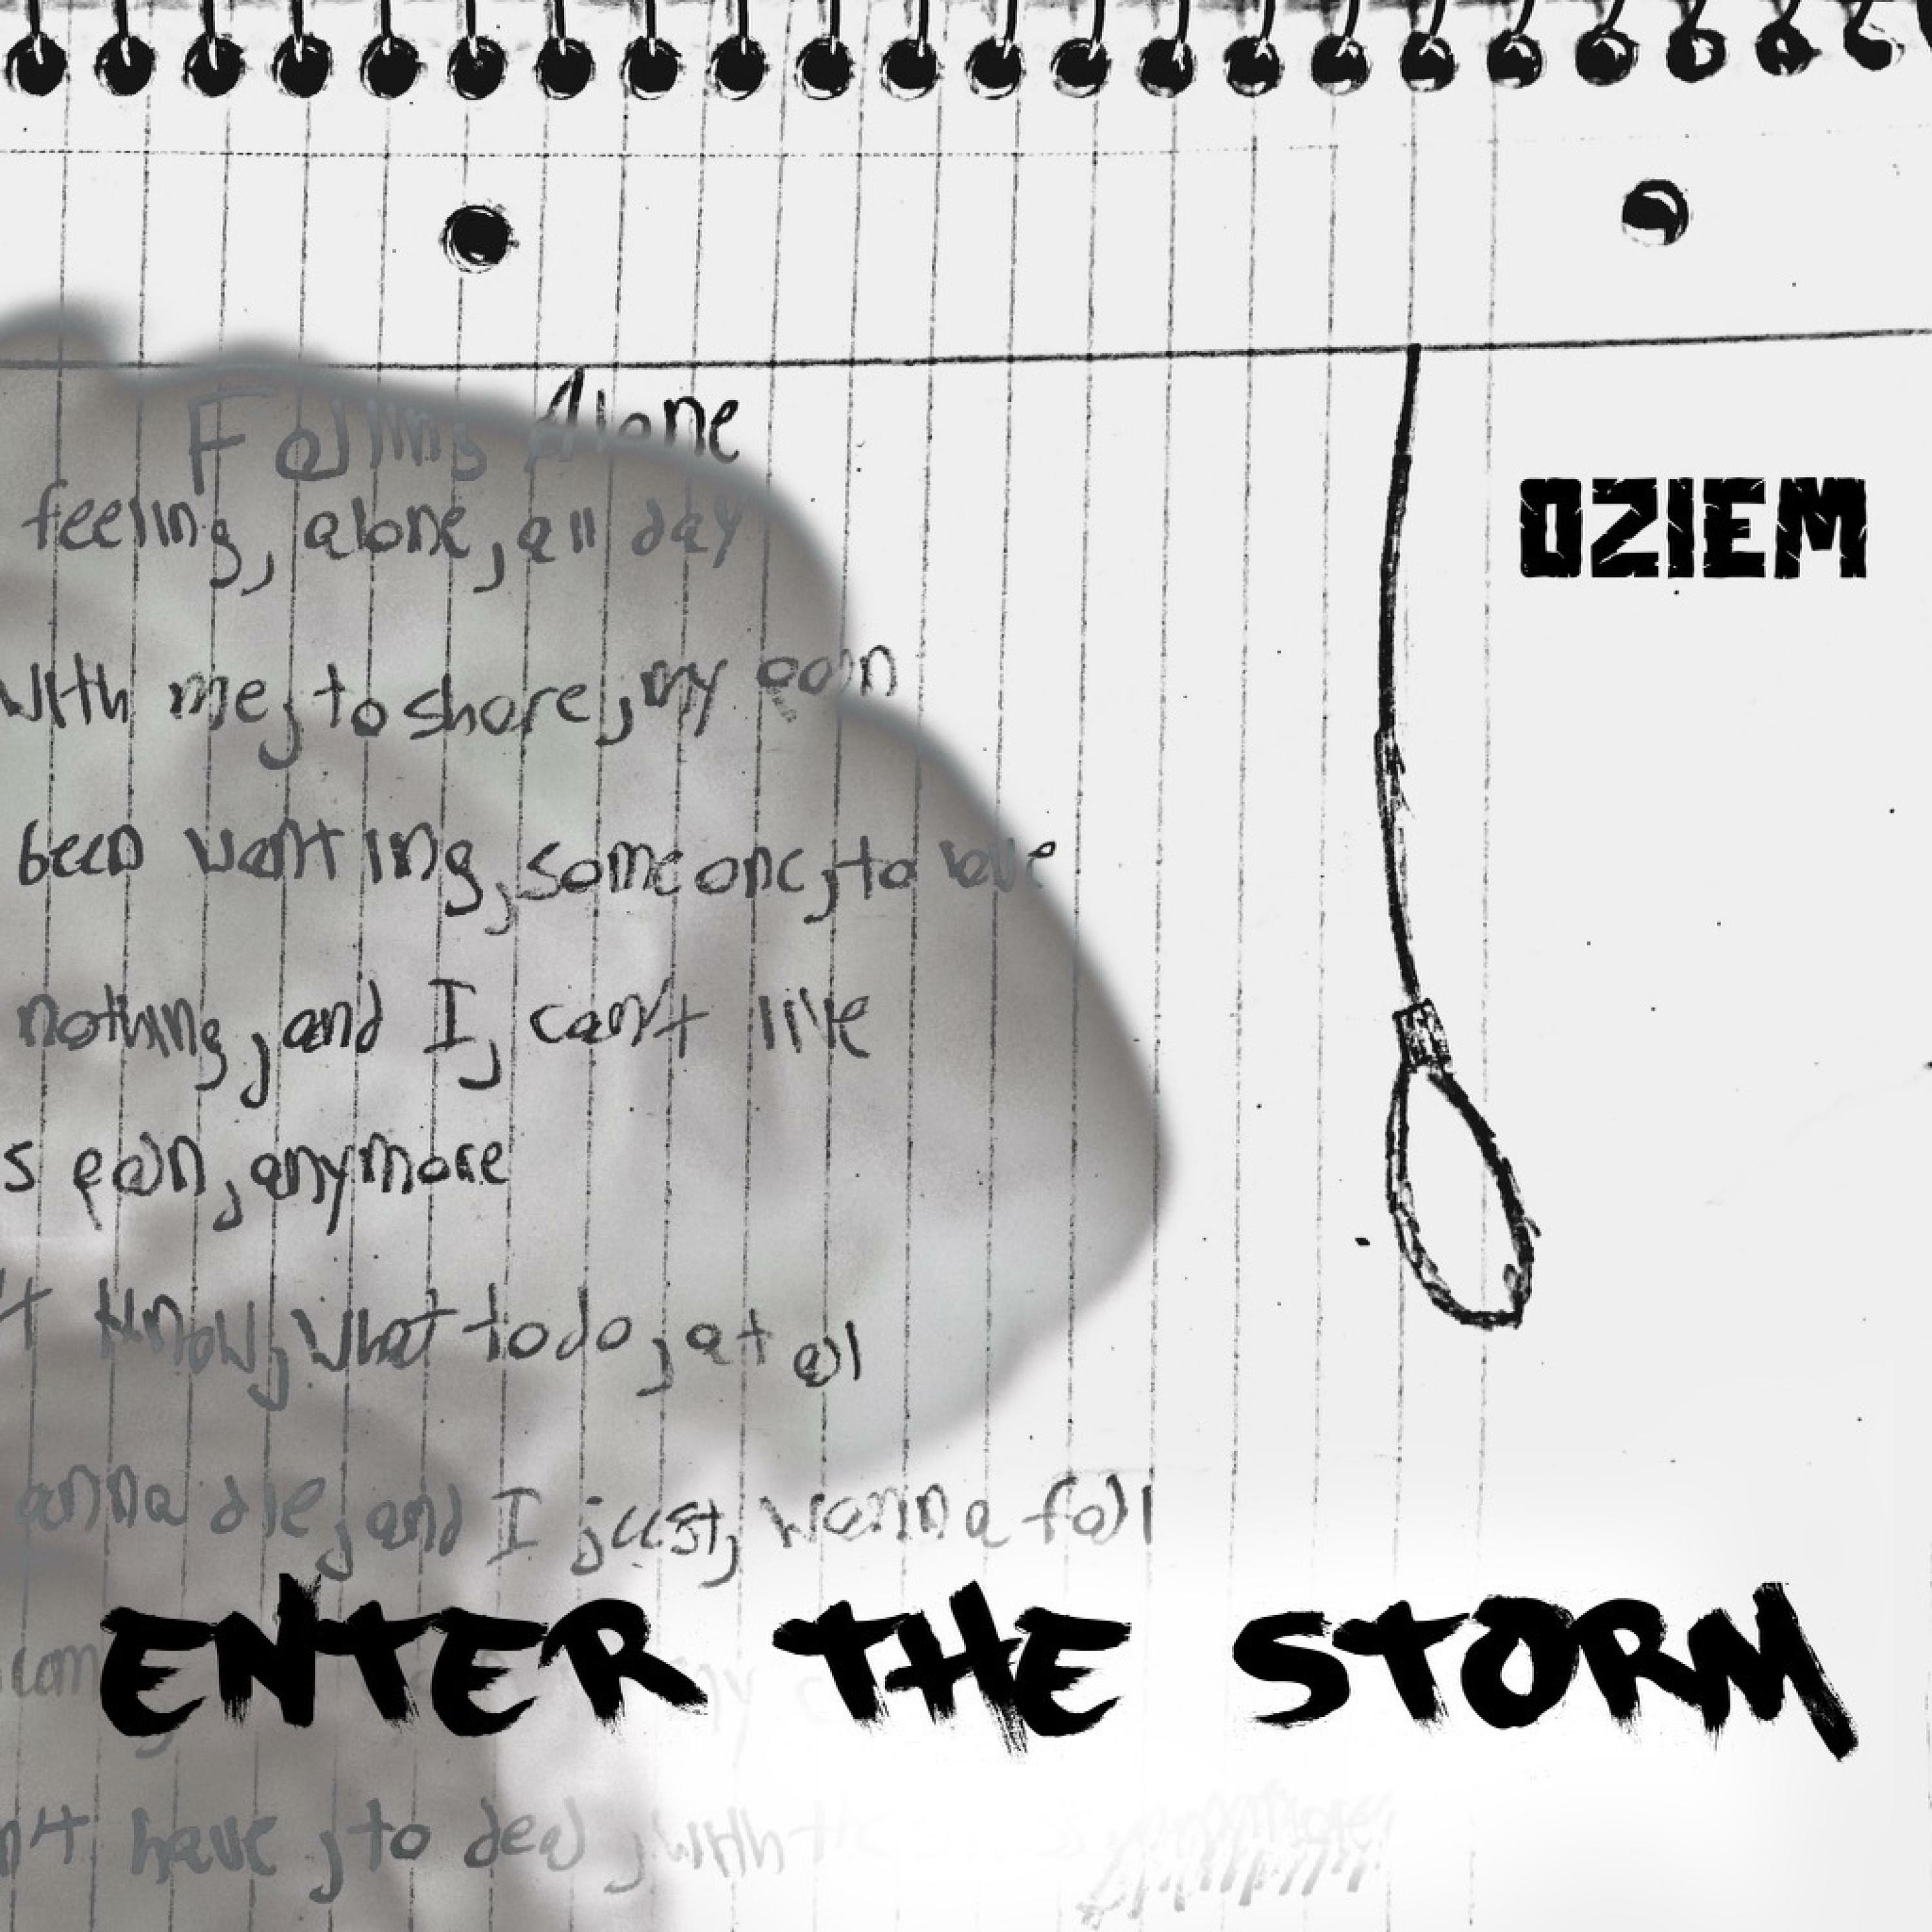 Falling Alone
feeling, alone, all day
OZIEM
with me, to share, my pain
been wanting, someone, to love
nothing, and I, can't live
s pain, anymore
't know, what to do, at all
anna die, and I just, wanna fall
ENTER THE STORM
n't have, to deal, with